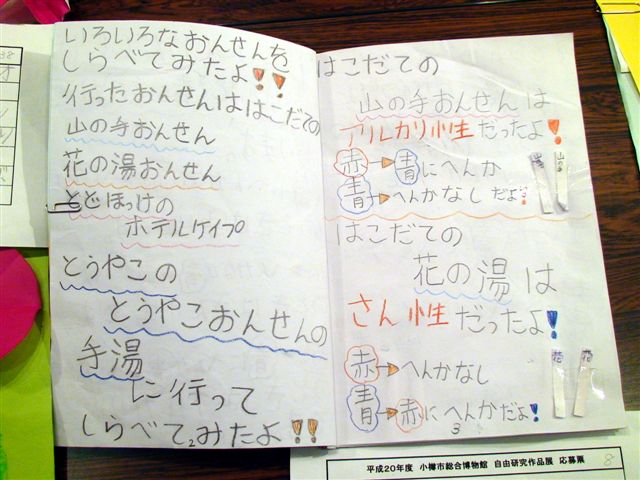 いろいろなおんせんを
しらべてみたよ!!
行ったおんせんははこだての
山の手おんせん
花の湯おんせん
とどほっけの
ホテルケイプ
とうやこの
とうやこおんせんの
手湯
に行って
しらべてみたよ!!
2
はこだての
山の手おんせんは
アルカリ性だったよ!
赤→青にへんか
青→へんかなしだよ!
はこだての
花の湯は
さん性だったよ!
赤→へんかなし
青→赤にへんかだよ!
3
平成20年度 小樽市総合博物館 自由研究作品展 応募票
8